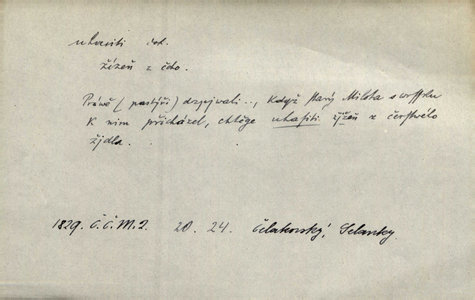 uhasiti čeho
žízeň z čeho.
Právě (pastýři) dozpívali.., když starý Milota s wršku
k nim přicházel, chtěge uhasiti žjzeň z čerstwého
žjdla.
1829. Č.Č.M. 2. 20. 24. Čelakovský, Selanky.